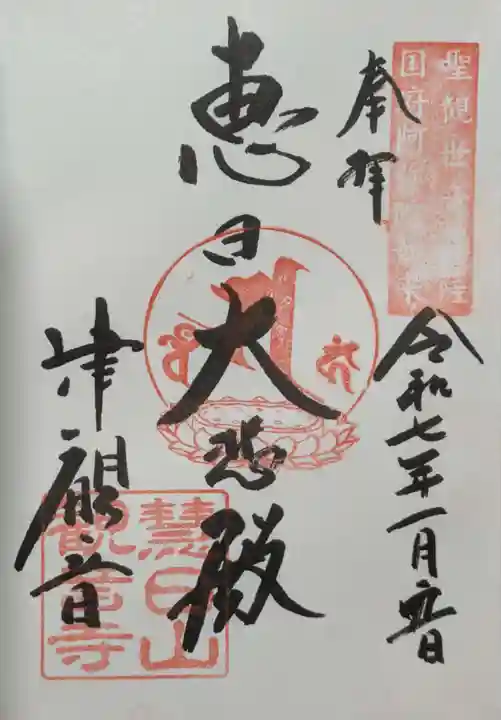 聖観世音菩薩
国府阿弥陀如来
奉拝
令和七年一月六日
恵日大悲殿
津観音
慧日山
観音寺